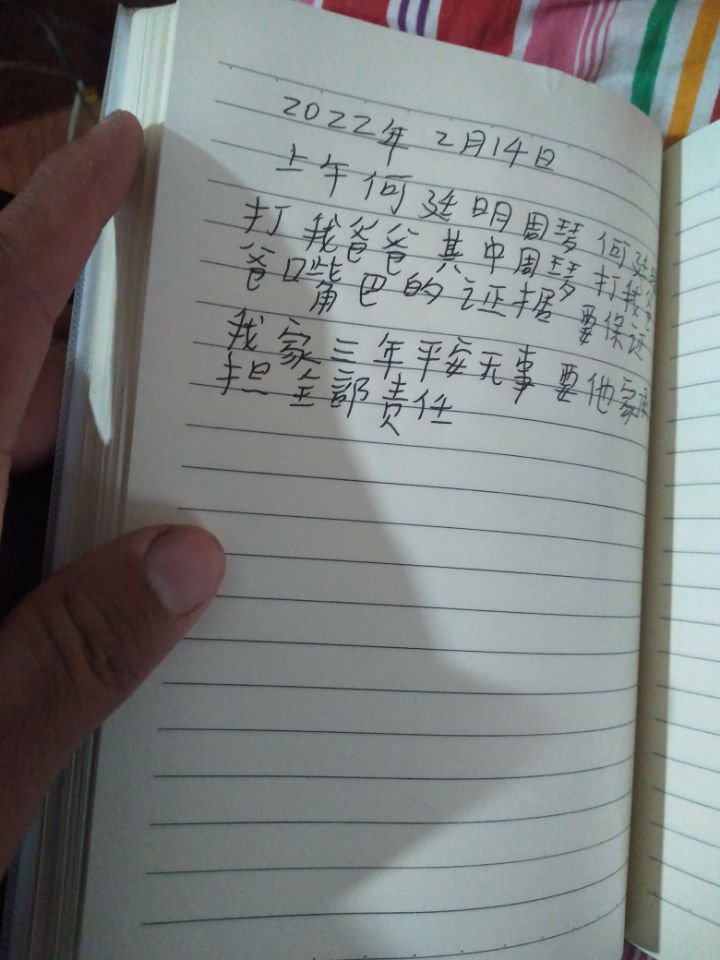 2022年 2月14日
上午何延明周琴何延明
打我爸爸其中周琴打我爸
爸嘴角巴的证据要保证
我家三年平安无事要他家
担全部责任